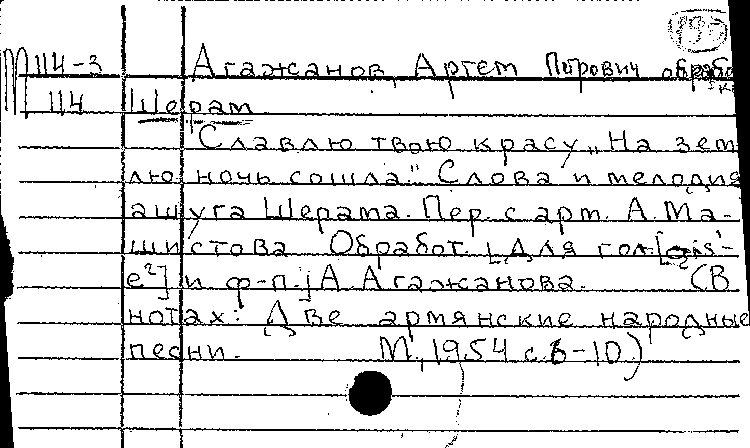 195
М 114-3 Агажанов, Артем Петрович обработка
114 Шерам
Славлю твою красу „На зем
лю ночь сошла". Слова и мелодия
ашуга Шерама. Пер. с арм. А. Ма-
шистова Обработ. [для гол. [gis¹-
e²] и ф-п.] А Агажанова. (В
нотах: Две армянские народные
песни. М, 1954 с. 6-10)